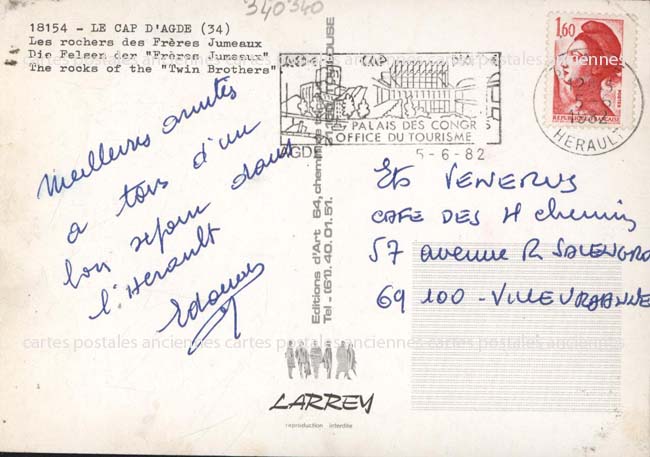 340340
18154 - LE CAP D'AGDE (34)
Les rochers des Frères Jumeaux
Die Felsen der "Frères Jumeaux"
The rocks of the "Twin Brothers"
Meilleures amitiés
a tous d'un
bon séjour dans
l'Hérault
Edouard
Editions d'Art
64, chemin
TOULOUSE
Tel - (61). 40.01.51.
CAP D'A
PALAIS DES CONGR
OFFICE DU TOURISME
AGDE
5-6-82
HERAULT
1,60
POSTES
REPUBLIQUE FRANÇAISE
Ets VENERUS
CAFE DES 4 chemins
57 avenue R. SALENGRO
69100 - VILLEURBANNE
cartes postales anciennes cartes postales anciennes cartes postales anciennes
cartes postales anciennes cartes postales anciennes cartes postales anciennes
LARREY
reproduction interdite